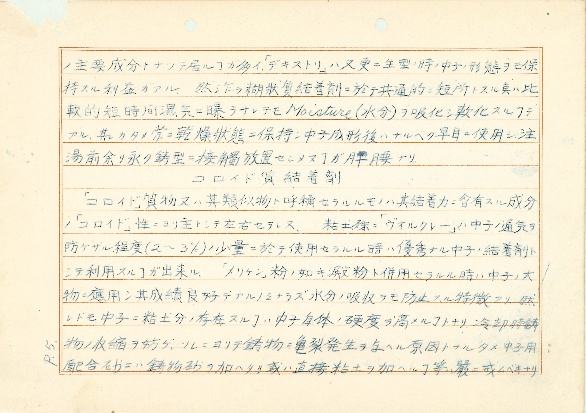 ノ主要成分トナツテ居ルヿガ多イ、「デキストリ」ハ又更ニ生型ノ時ノ中子ノ形態ヲモ保
持スル利益ガアル. 然シ乍ラ糊状質結着剤ニ於テ共通的ニ短所トスル点ハ比
較的短時間湿気ニ曝ラサレテモ Moisture (水分)ヲ吸化シ軟化スルヿデ
アル、其レガタメ常ニ乾燥状態ニ保持シ中子成形後ハナルベク早目ニ使用シ注
湯前余リ永ク鋳型ニ接觸放置セシメヌヿガ肝腰ナリ
コロイド質結着剤
「コロイド」質物又ハ其類似物ト呼称セラルルモノハ其結着力ニ含有スル成分
ノ「コロイド」性ニヨリ主トシテ左右セラレス、 粘土操ニ「ヴイルクレー」ハ中子ノ通気ヲ
防ゲザル程度(2〜3%)ノ小量ニ於テ使用セラルル時ハ優秀ナル中子ノ結着剤ト
シテ利用スルヿガ出来ル. 「メリケン」粉ノ如キ澱粉ト併用セラルル時ハ中子ノ大
物ニ應用シ其成績良好デアルノミナラズ水分ノ吸収ヲモ防止スル特徴アリ 然
レドモ中子ニ粘土分ノ存在スルヿハ中子自体ノ硬度ヲ高メルヿトナリ冷却時鋳
物ノ収縮ヲ妨ゲソレニヨリテ鋳物ニ亀裂発生ヲ与ヘル原因トナルタメ中子用
配合砂ニハ鋳物砂ヲ加ヘタリ或ハ直接粘土ヲ加ヘルヿ等ハ厳ニ戒ムベキナリ
P.5.